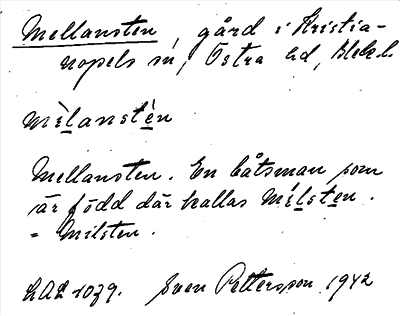 Mellansten, gård i Kristia-
nopels sn, Östra hd, Blek.l.
mèlanstèn
Mellansten. En båtsman som
är född där kallas Mílsten.
= Milsten.
LAL 1079. Sven Pettersson 1942